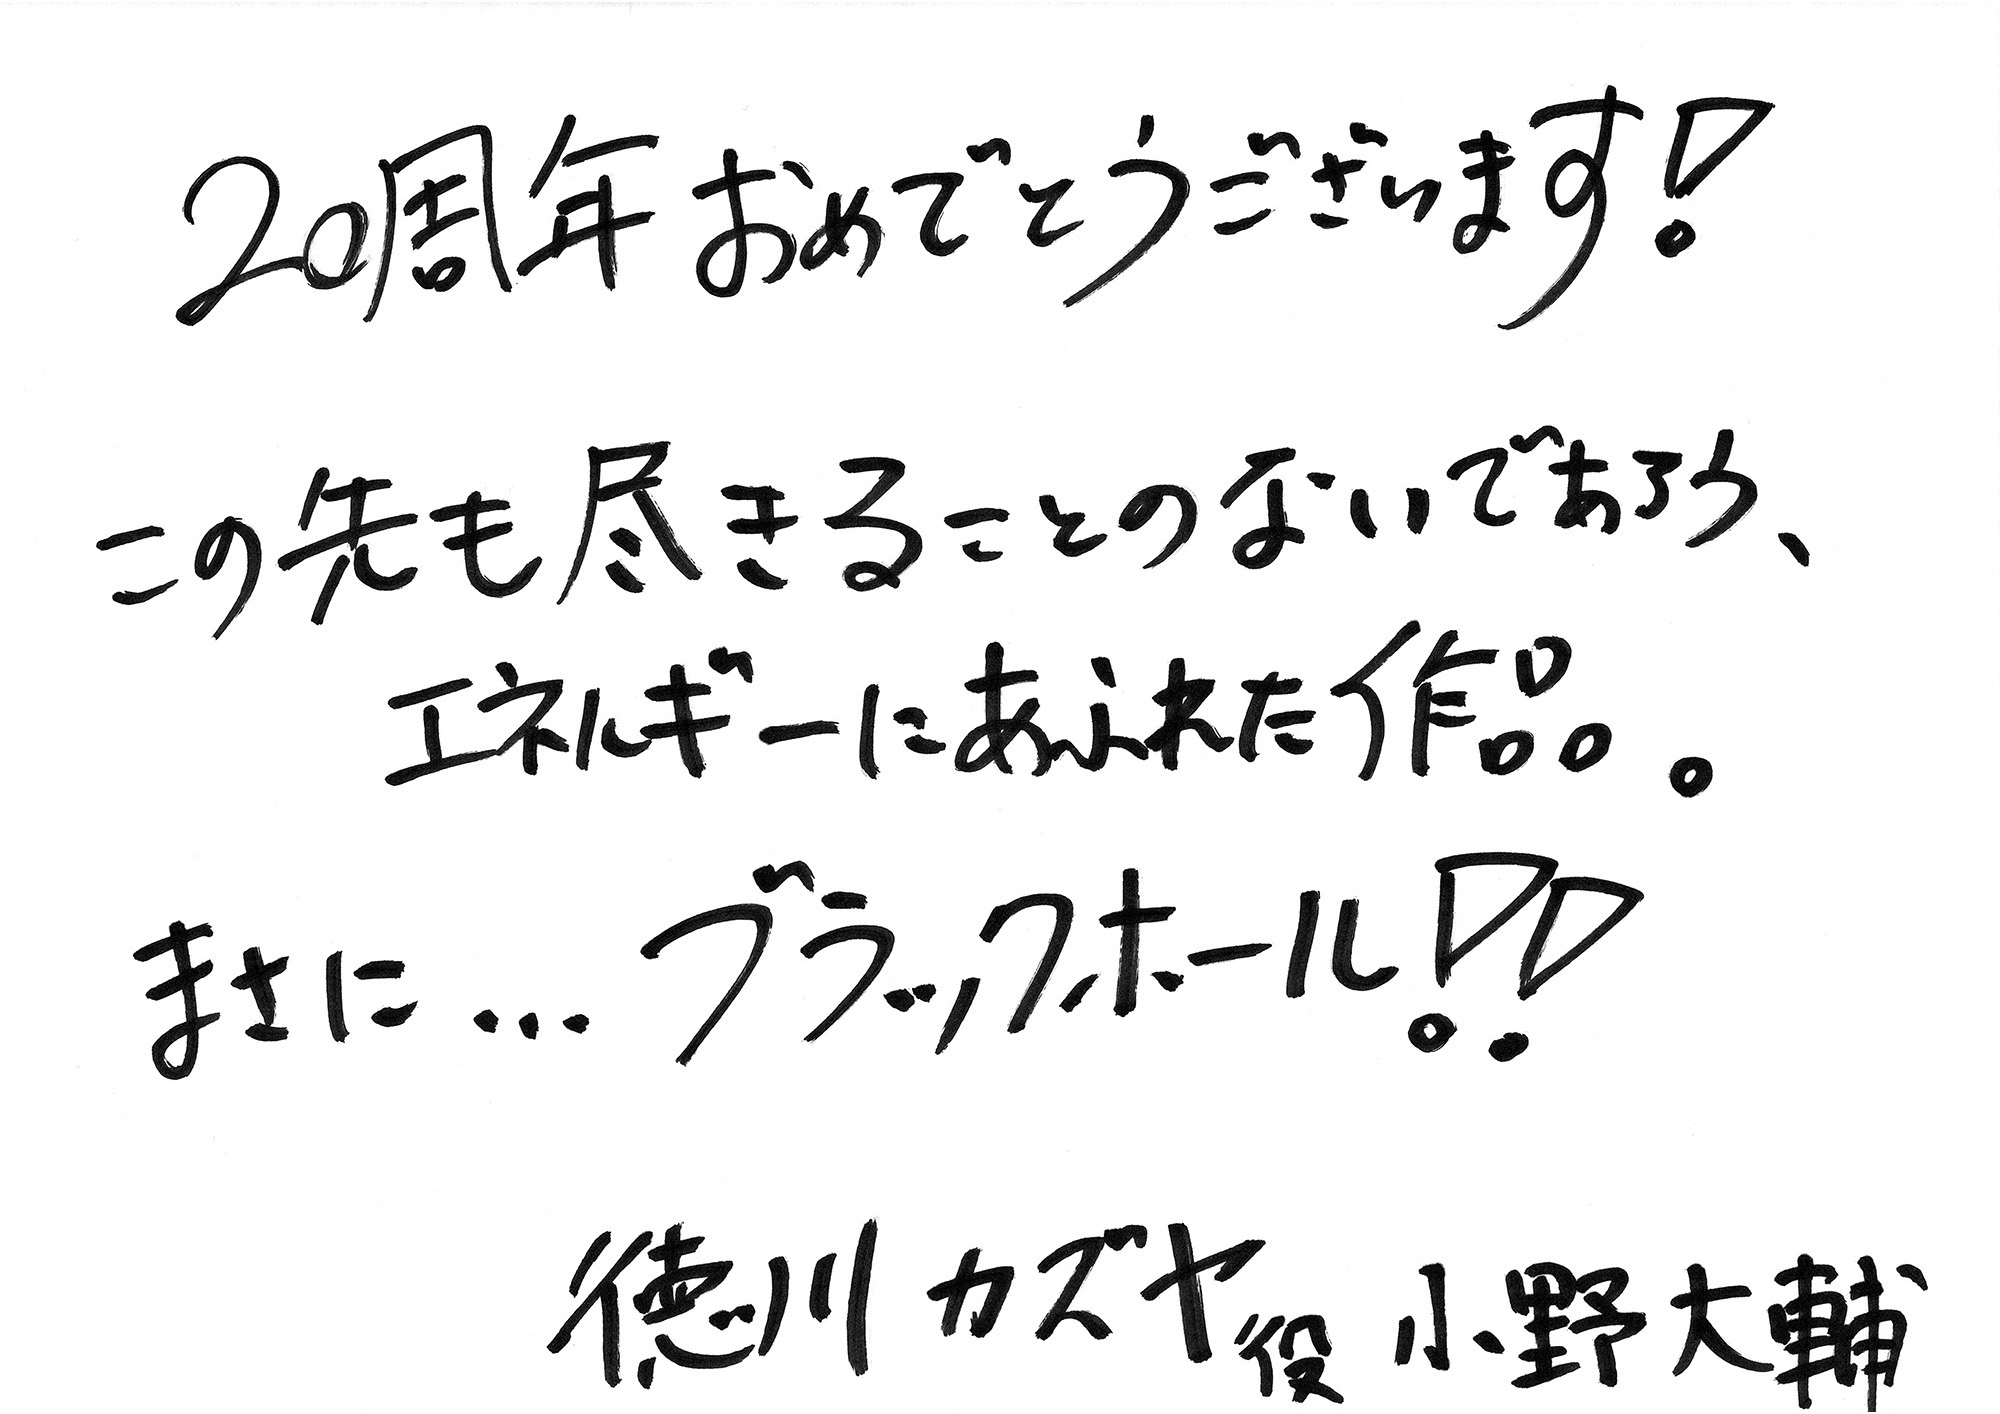 20周年おめでとうございます!
この先も尽きることのないであろう、
エネルギーにあふれた作品。
まさに...ブラックホール!!
徳川カズヤ役 小野大輔